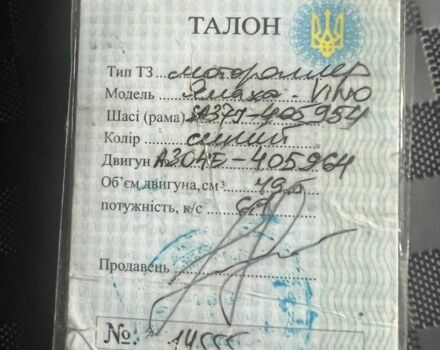 ТАЛОН
Тип ТЗ мотороллер
Модель Ямаха - VINO
Шасі (рама) SA37J-405954
Колір синий
Двигун № A304E-405964
Об'єм двигуна, см³ 49,5
потужність, к/с
Продавець
№